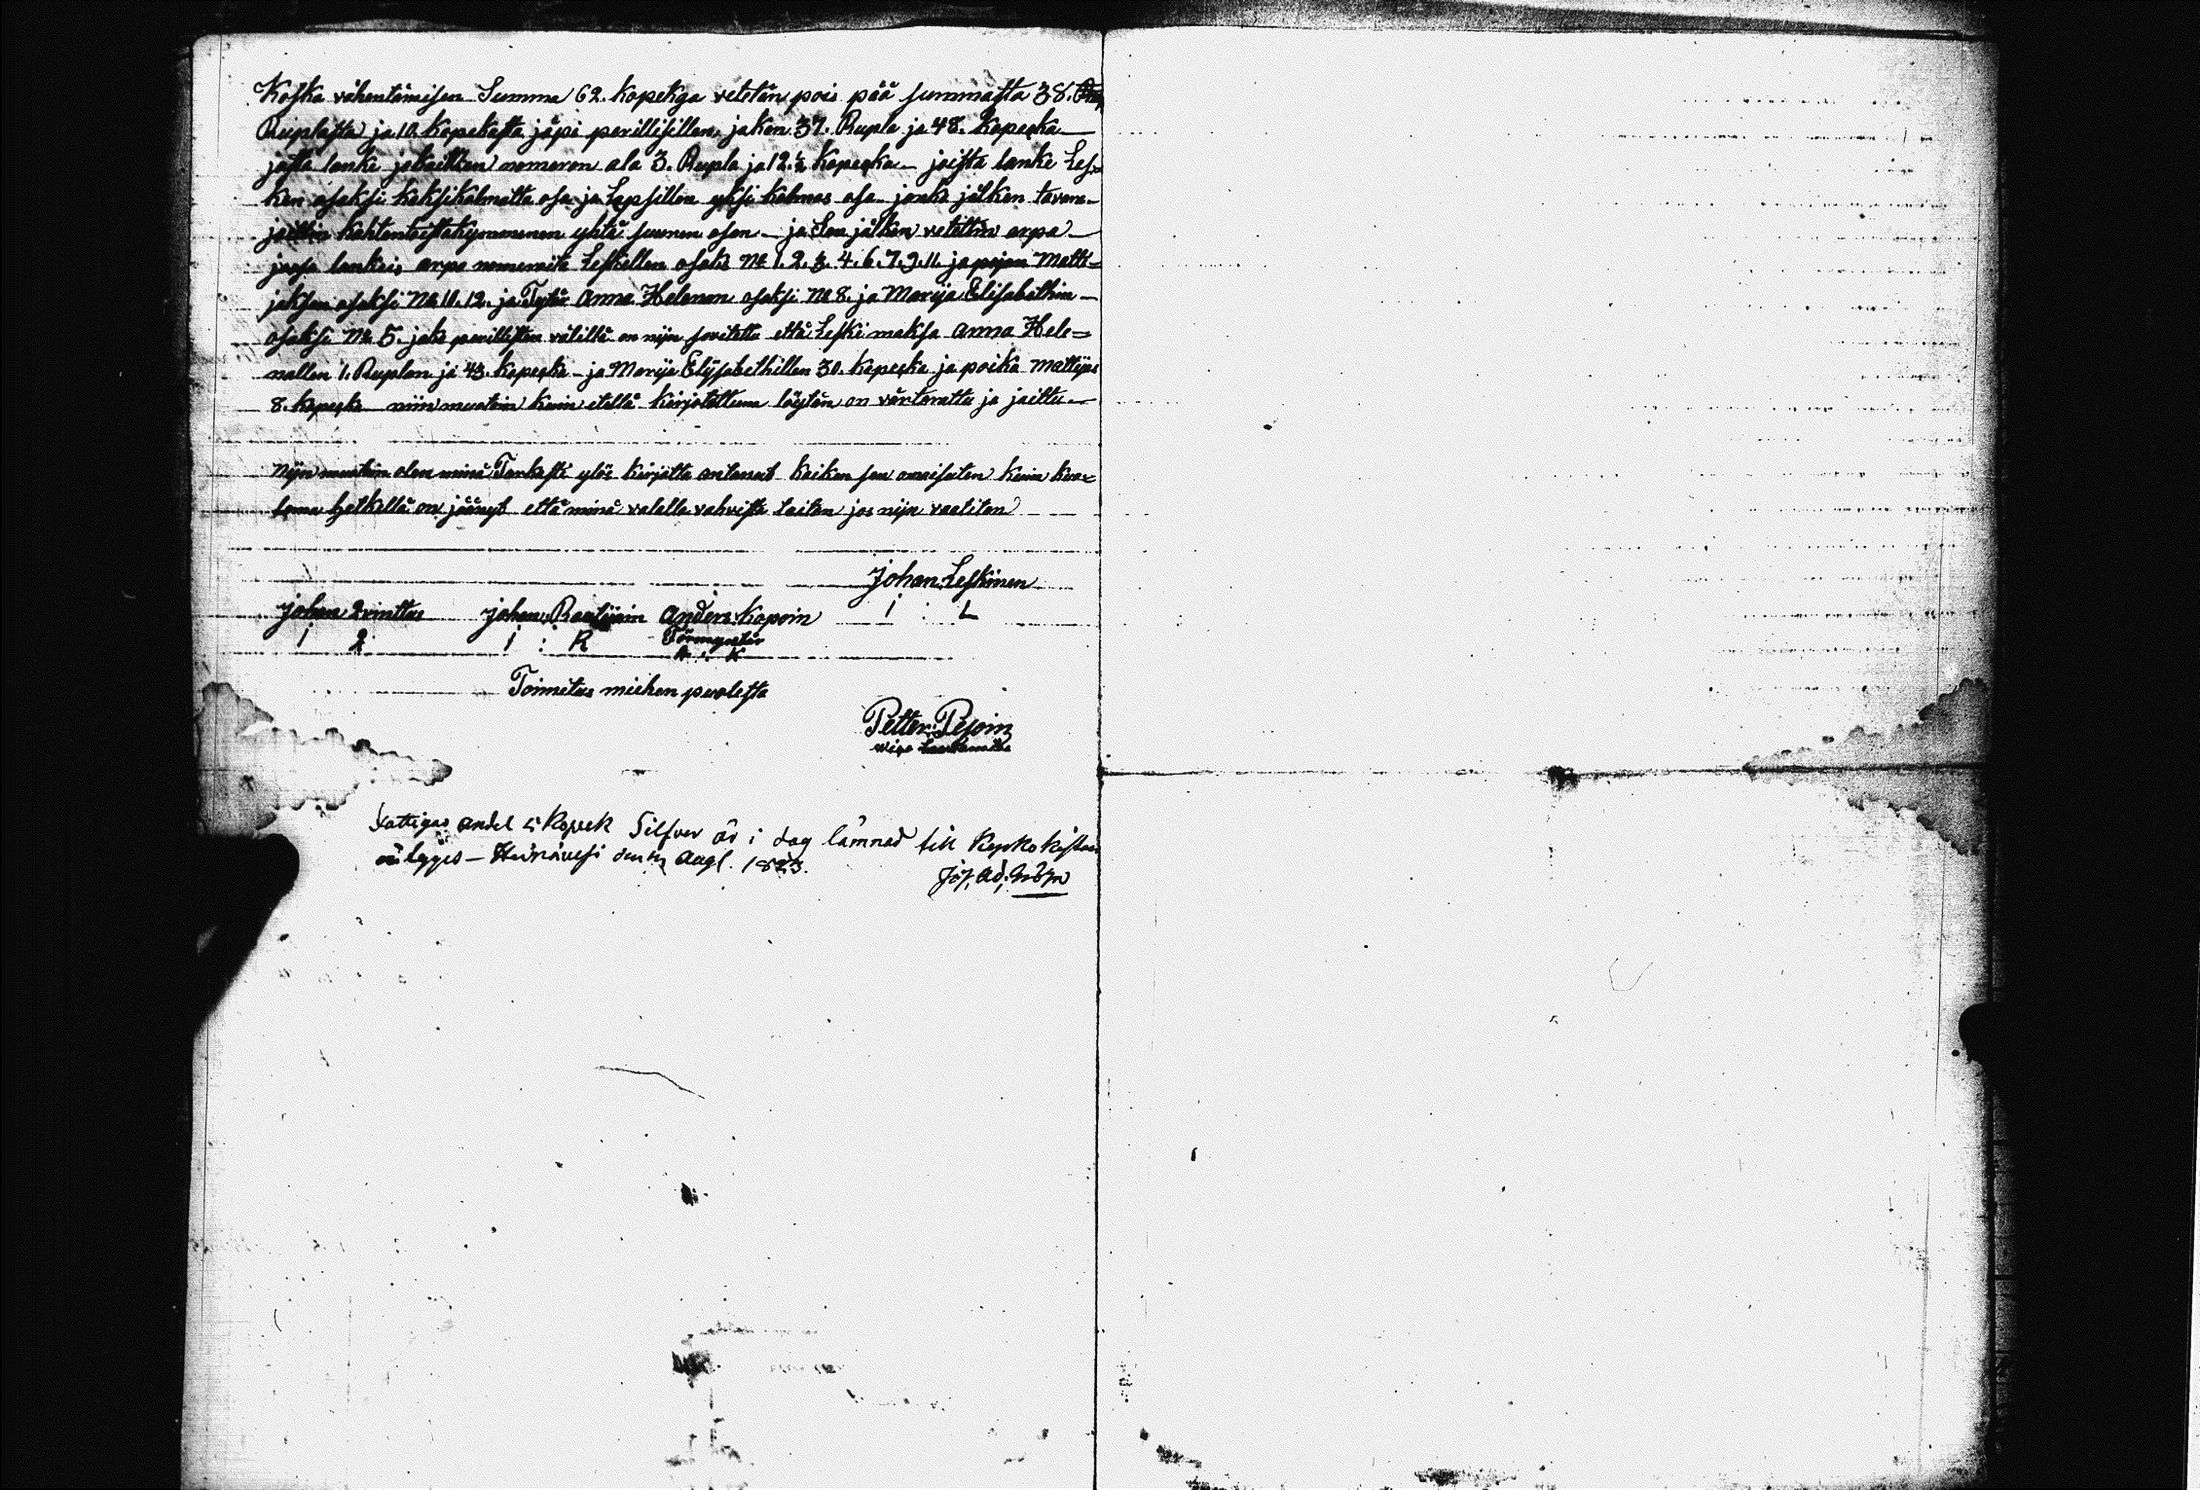 Koska vähentämisen Summa 62. kopekga vetetän pois pää summasta 38.
Ruplasta ja 10. kopekasta jäpi perillisillen jakon 37. Rupla ja 48. kopecka
josta lanke jokaitzen nomeron ala 3. Rupla ja 12.½ kopecka joista lanke Les-
ken osaksi kaksikålmatta osa ja Lapsillen yksi kålmas osa jonka jälken tavara
jaettin kahtentoistakymmenen yhtä suuren osan ja sen jälken vetettin arpa
josa lankeis arpa nomeroita Leskellen osaks No 1. 2. 3. 4. 6. 7. 9. 11. ja pojan Matti-
jaksen osaksi No 10. 12. ja Tytär Anna Helenan osaksi No 8. ja Marija Elisabethin
osaksi No 5. joka perillisten välillä on nijn sovitettu että Leski maksa Anna Hele=
nallen 1. Ruplan ja 43. kopecka ja Marija Elijsabethillen 30. kopecka ja poika Mattijas
8. kopecka niin muutoin kuin edellä kirjotettuna löytän on värterattu ja jaittu
Nijn muutoin olen minä Tarkasti ylös kirjotta antanut kaiken sen omaisuten kuin kuo=
lema hetkellä on jäänyt että minä valalla vahvista taitan jos nijn vaatitan
Johan Leskinen
I : L
Johan Qvinttus Johan Raatijkain Anders Kapoin
I Q I : R
A : K
Toimitus miehen puolesta
Petter Pesoin
wice Lautamies
Fattigas andel 5 Kopek Silfver är i dag lämnad till Kyrko kistan
intygas – Heinävesi den Aug. 1823.
Jos. Ad.